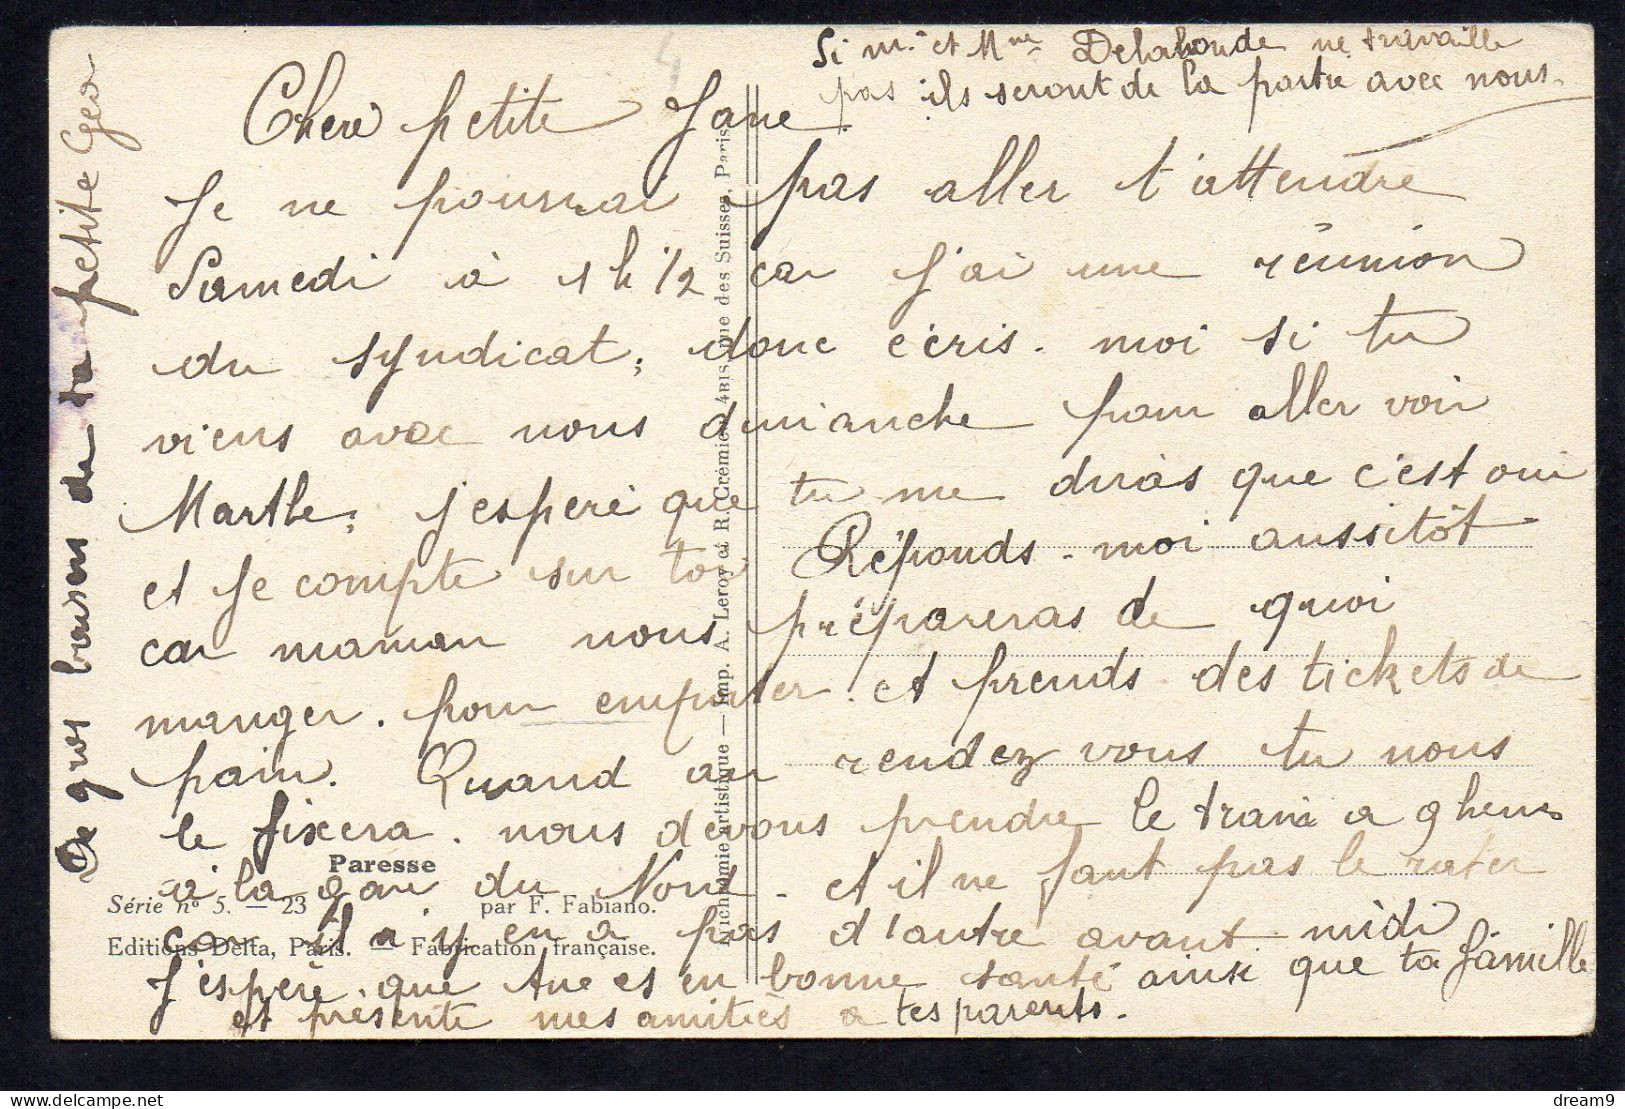 Si mr et Mme Delahonde ne travaille
pas ils seront de la partie avec nous.
Chere petite Jane.
Je ne pourrai pas aller t'attendre
Samedi à 1 h 1/2 car j'ai une réunion
du syndicat; donc ecris-moi si tu
viens avec nous dimanche pour aller voir
Marthe; j'espere que tu me diras que c'est oui
et je compte sur toi Réponds-moi aussitôt
car maman nous prépareras de quoi
manger. pour emporter. et prends des tickets de
pain. Quand au rendez vous tu nous
le fixera. nous devons prendre le train a 9 heures
à la gare du Nord - et il ne faut pas le rater
car il n'y en a pas d'autre avant midi
J'espère que tue es en bonne santé ainsi que ta famille
et présente mes amitiés a tes parents.
De gros baisers de ta petite Geo
Paresse
Série nº 5. — 23 par F. Fabiano.
Editions Delta, Paris. — Fabrication française.
Imp. A. Leroy et R. Crémieu, 4BIS, rue des Suisses, Paris.
dream9